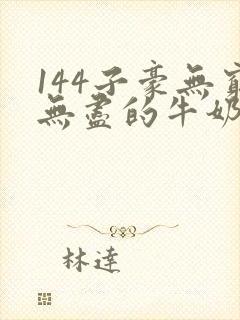 144子豪無窮
無盡的牛奶
林達